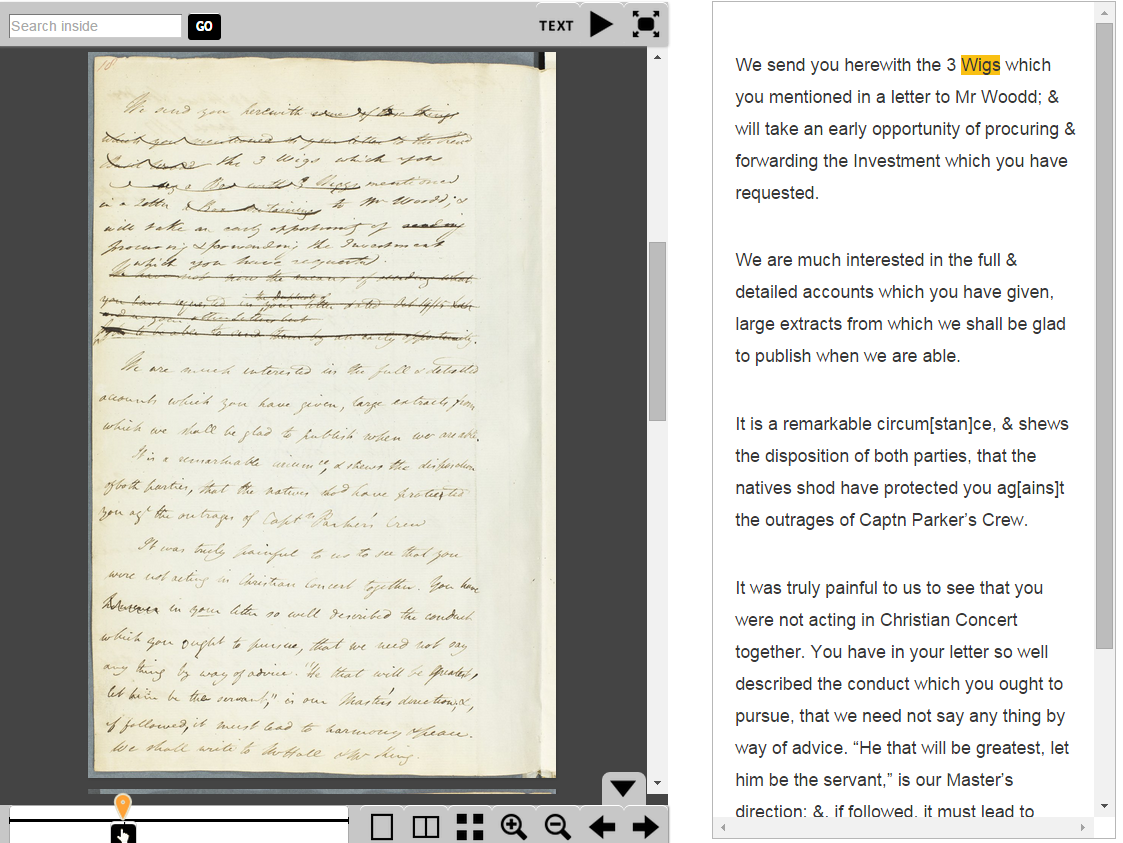 Search inside
GO
TEXT
18
We send you herewith some of the things
which you mentioned in your letter to the Revd
the 3 Wigs which you
a Box with 3 Wiggs mentioned
in a letter a Box containing to Mr Woodd; &
will take an early opportunity of sending
procuring & forwarding the Investment
which you have requested.
We have not now the means of sending what
the Duplicate of
you have requested in your letter dated
and in your other letters but
to be able to send them by an early opportunity.
We are much interested in the full & detailed
accounts which you have given, large extracts from
which we shall be glad to publish when we are able.
It is a remarkable circumce, & shews the disposition
of both parties, that the natives shod have protected
you agt the outrages of Captn Parker's Crew
It was truly painful to us to see that you
were not acting in Christian Concert together. You have
in your letter so well described the conduct
which you ought to pursue, that we need not say
any thing by way of advice. "He that will be greatest,
let him be the servant," is our Master's direction; &,
if followed, it must lead to harmony & peace.
We shall write to Mr Hall & Mr King.
We send you herewith the 3 Wigs which
you mentioned in a letter to Mr Woodd; &
will take an early opportunity of procuring &
forwarding the Investment which you have
requested.
We are much interested in the full &
detailed accounts which you have given,
large extracts from which we shall be glad
to publish when we are able.
It is a remarkable circum[stan]ce, & shews
the disposition of both parties, that the
natives shod have protected you ag[ains]t
the outrages of Captn Parker’s Crew.
It was truly painful to us to see that you
were not acting in Christian Concert
together. You have in your letter so well
described the conduct which you ought to
pursue, that we need not say any thing by
way of advice. “He that will be greatest, let
him be the servant,” is our Master’s
direction; &, if followed, it must lead to